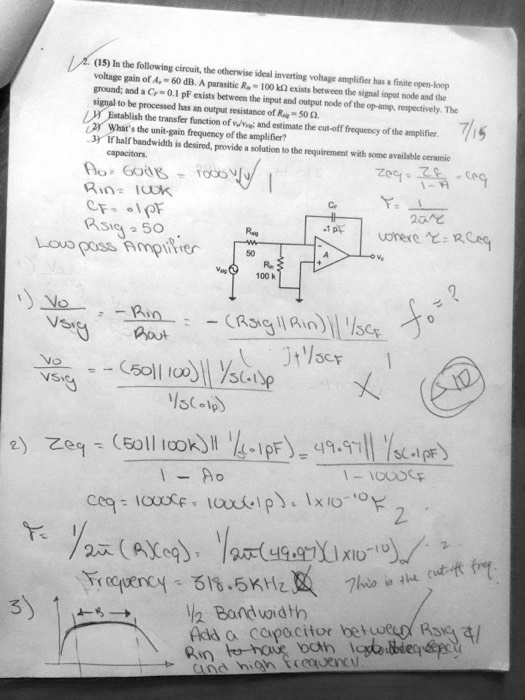 2. (15) In the following circuit, the otherwise ideal inverting voltage amplifier has a finite open-loop
voltage gain of A₀ = 60 dB. A parasitic Rᵢₙ = 100 kΩ exists between the signal input node and the
ground; and a C_F = 0.1 pF exists between the input and output node of the op-amp, respectively. The
signal to be processed has an output resistance of R_sig = 50 Ω.
1) Establish the transfer function of vₒ/vₛᵢg and estimate the cut-off frequency of the amplifier.
7/15
2) What's the unit-gain frequency of the amplifier?
3) If half bandwidth is desired, provide a solution to the requirement with some available ceramic
capacitors.
A₀ = 60dB = 1000 V/V
Rin = 100k
CF = .1pF
Rsig = 50
Low pass Amplifier
Zeq = ZF / 1-A
Ceq
1 / 2π
where τ = R Ceq
CF
.1 pF
Rsig
50
Vsig
Rin
100 k
-
A
+
Vo
1) Vo/Vsig = -Rin/Rout = -(Rsig||Rin)||1/sCF
fo = ?
Vo/Vsig = -(50||100)||1/s(.1)p
1/s(.1p)
X
2) Zeq = (50||100k)||1/s(.1pF) = 49.97||1/s(.1pF)
1 - Ao
Ceq = 1000CF = 1000(.1p) = 1x10⁻¹⁰ F
2
1/2π(R)(Ceq) = 1/2π(49.97)(1x10⁻¹⁰)
Frequency = 318.5KHz
This is the cut-off freq.
3)
B
1/2 Bandwidth
Add a capacitor between Rsig &
Rin to have both
and high frequency.